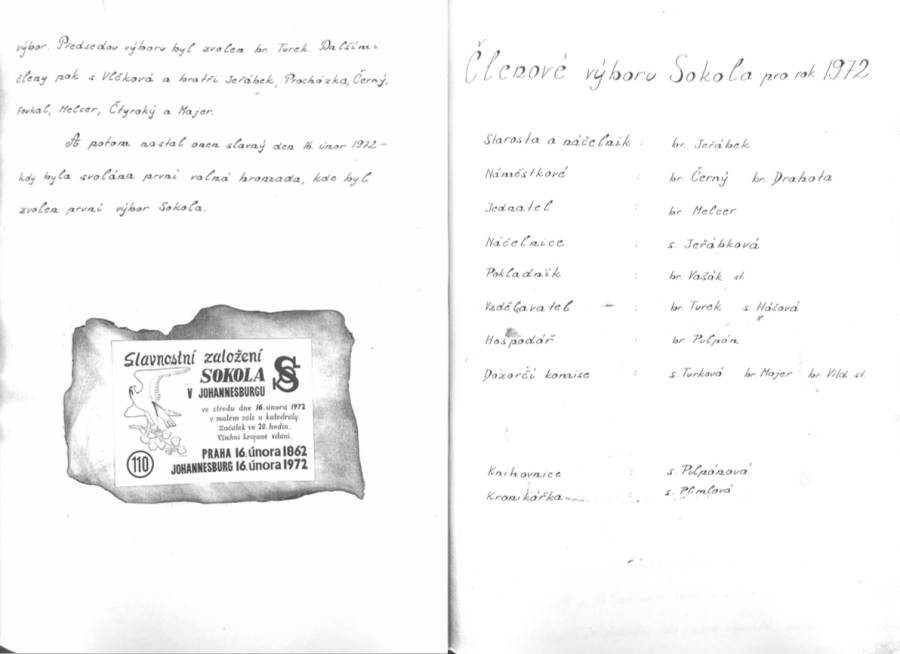 výbor. Předsedou výboru byl zvolen br. Turek. Dalšími
členy pak s. Vlčková a bratři Jeřábek, Procházka, Černý,
Foukal, Melcer, Čtyroký a Majer.
A potom nastal onen slavný den 16. únor 1972 –
kdy byla svolána první valná hromada, kde byl
zvolen první výbor Sokola.
Slavnostní založení
SOKOLA
V JOHANNESBURGU
ve středu dne 16. února 1972
v malém sále u katedrály.
Začátek ve 20. hodin.
Všichni krajané vítáni.
110
PRAHA 16. února 1862
JOHANNESBURG 16. února 1972
Členové výboru Sokola pro rok 1972.
Starosta a náčelník : br. Jeřábek
Náměstkové : br. Černý br. Drahota
Jednatel : br. Melcer
Náčelnice : s. Jeřábková
Pokladník : br. Vašák st.
Vzdělavatel : br. Turek s. Hášová
Hospodář : br. Pulpán
Dozorčí komise : s. Turková br. Majer br. st.
Knihovnice : s. Pulpánová
Kronikářka : s. Plimlová